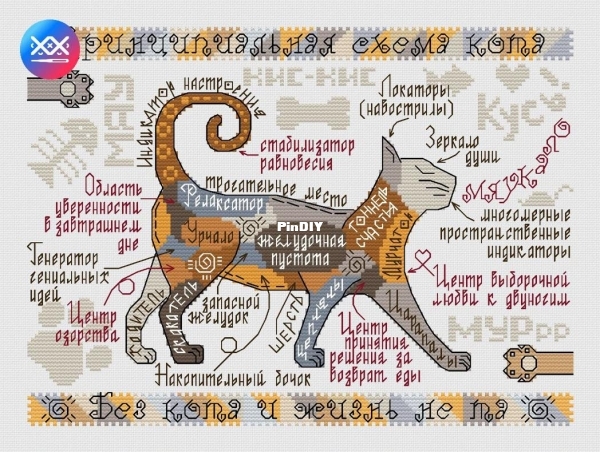 Принципиальная схема кота
Индикатор настроения
кис-кис
Локаторы
(навострилы)
Кусь
Зеркало
души
мяужало
стабилизатор
равновесия
Область
уверенности
в завтрашнем
дне
Релаксатор
трогательное место
PinDIY
Урчало
желудочная
пустота
тоннель
счастья
Мурчало
многомерные
пространственные
индикаторы
Генератор
гениальных
идей
Центр выборочной
любви к двуногим
Центр
озорства
ходитель
скакатель
запасной
желудок
шерсть
Цепляцы
Царапалы
Центр
принятия
решения за
возврат еды
мурррр
Накопительный бочок
Без кота и жизнь не та